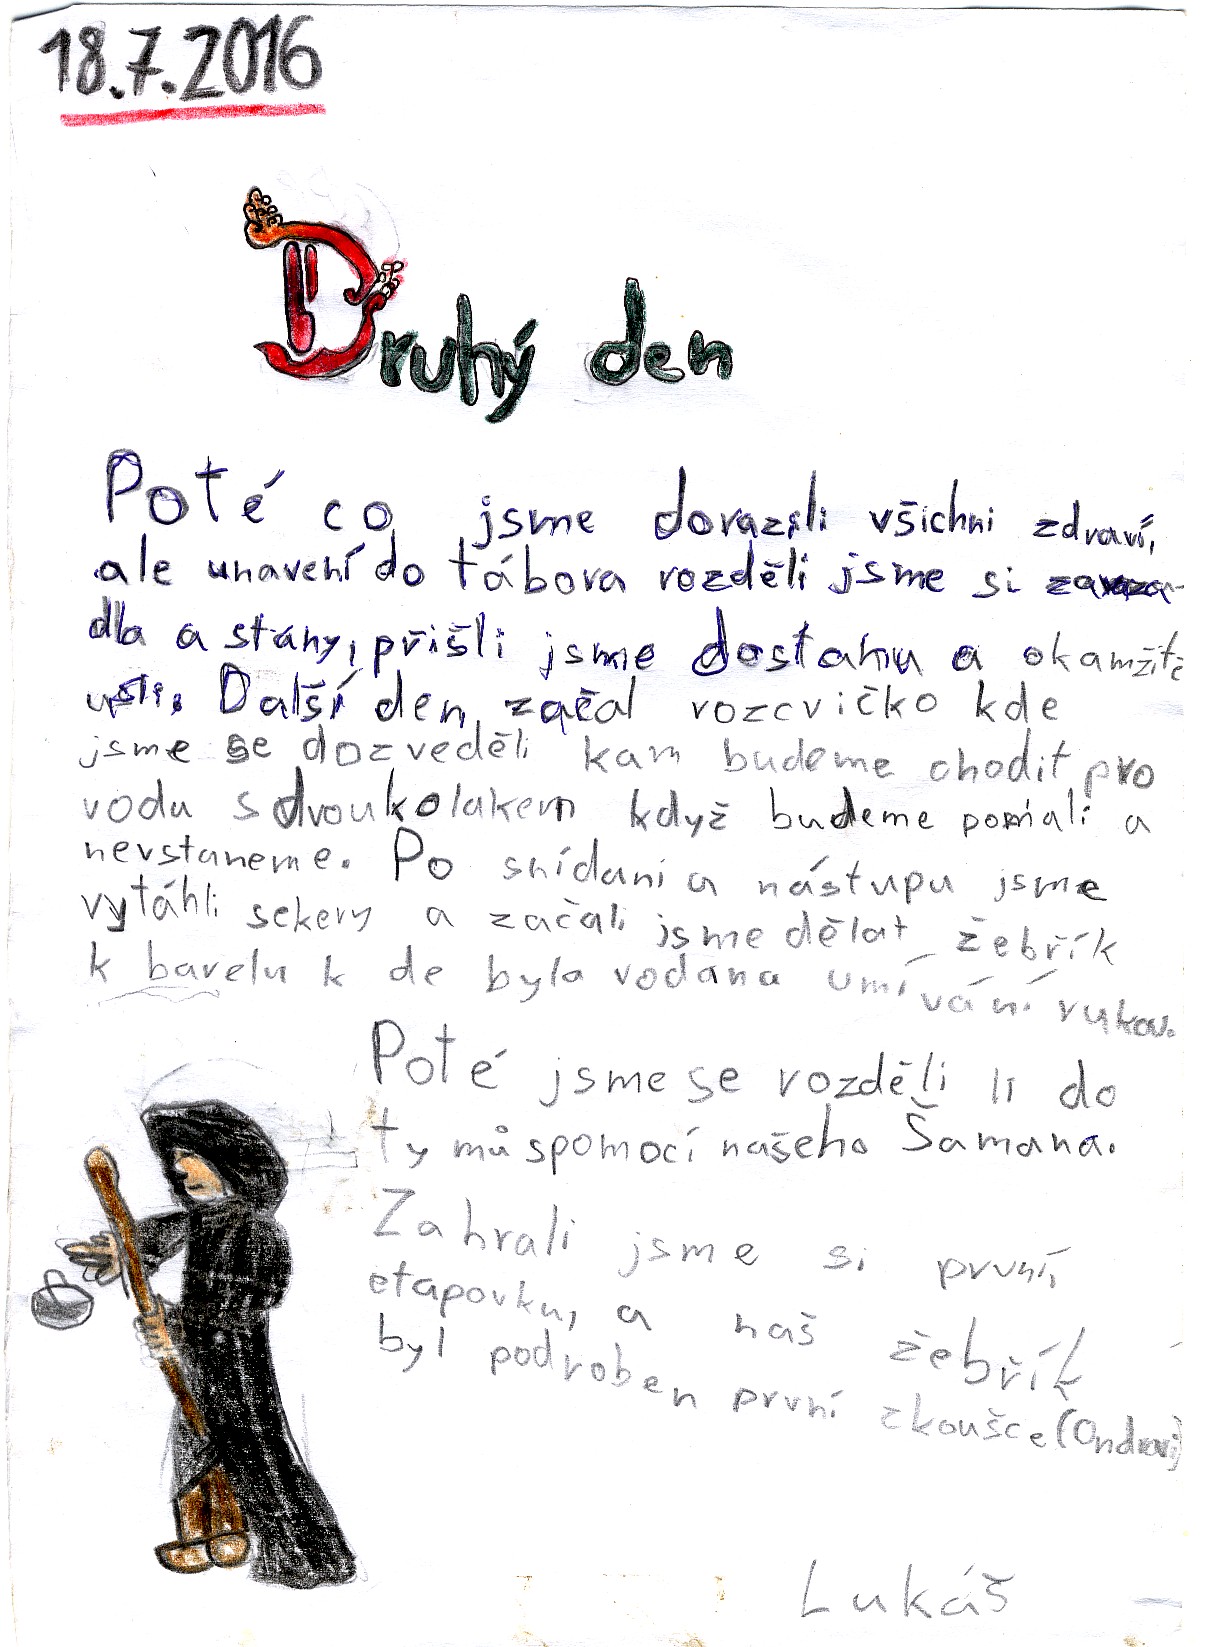 18.7.2016
Druhý den
Poté co jsme dorazili všichni zdraví,
ale unavení do tábora rozděli jsme si zavaza-
dla a stany, přišli jsme dostanu a okamžitě
usli. Další den začal rozcvičko kde
jsme se dozveděli kam budeme chodit pro
vodu s dvoukolakem když budeme pomali a
nevstaneme. Po snídani a nástupu jsme
vytáhli sekery a začali jsme dělat žebřík
k barelu k de byla vodana umívání rukou.
Poté jsme se rozděli li do
ty mů spomocí našeho Šamana.
Zahrali jsme si první
etapovku, a naš žebřík
byl podroben první zkoušce (Ondrovi)
Lukáš